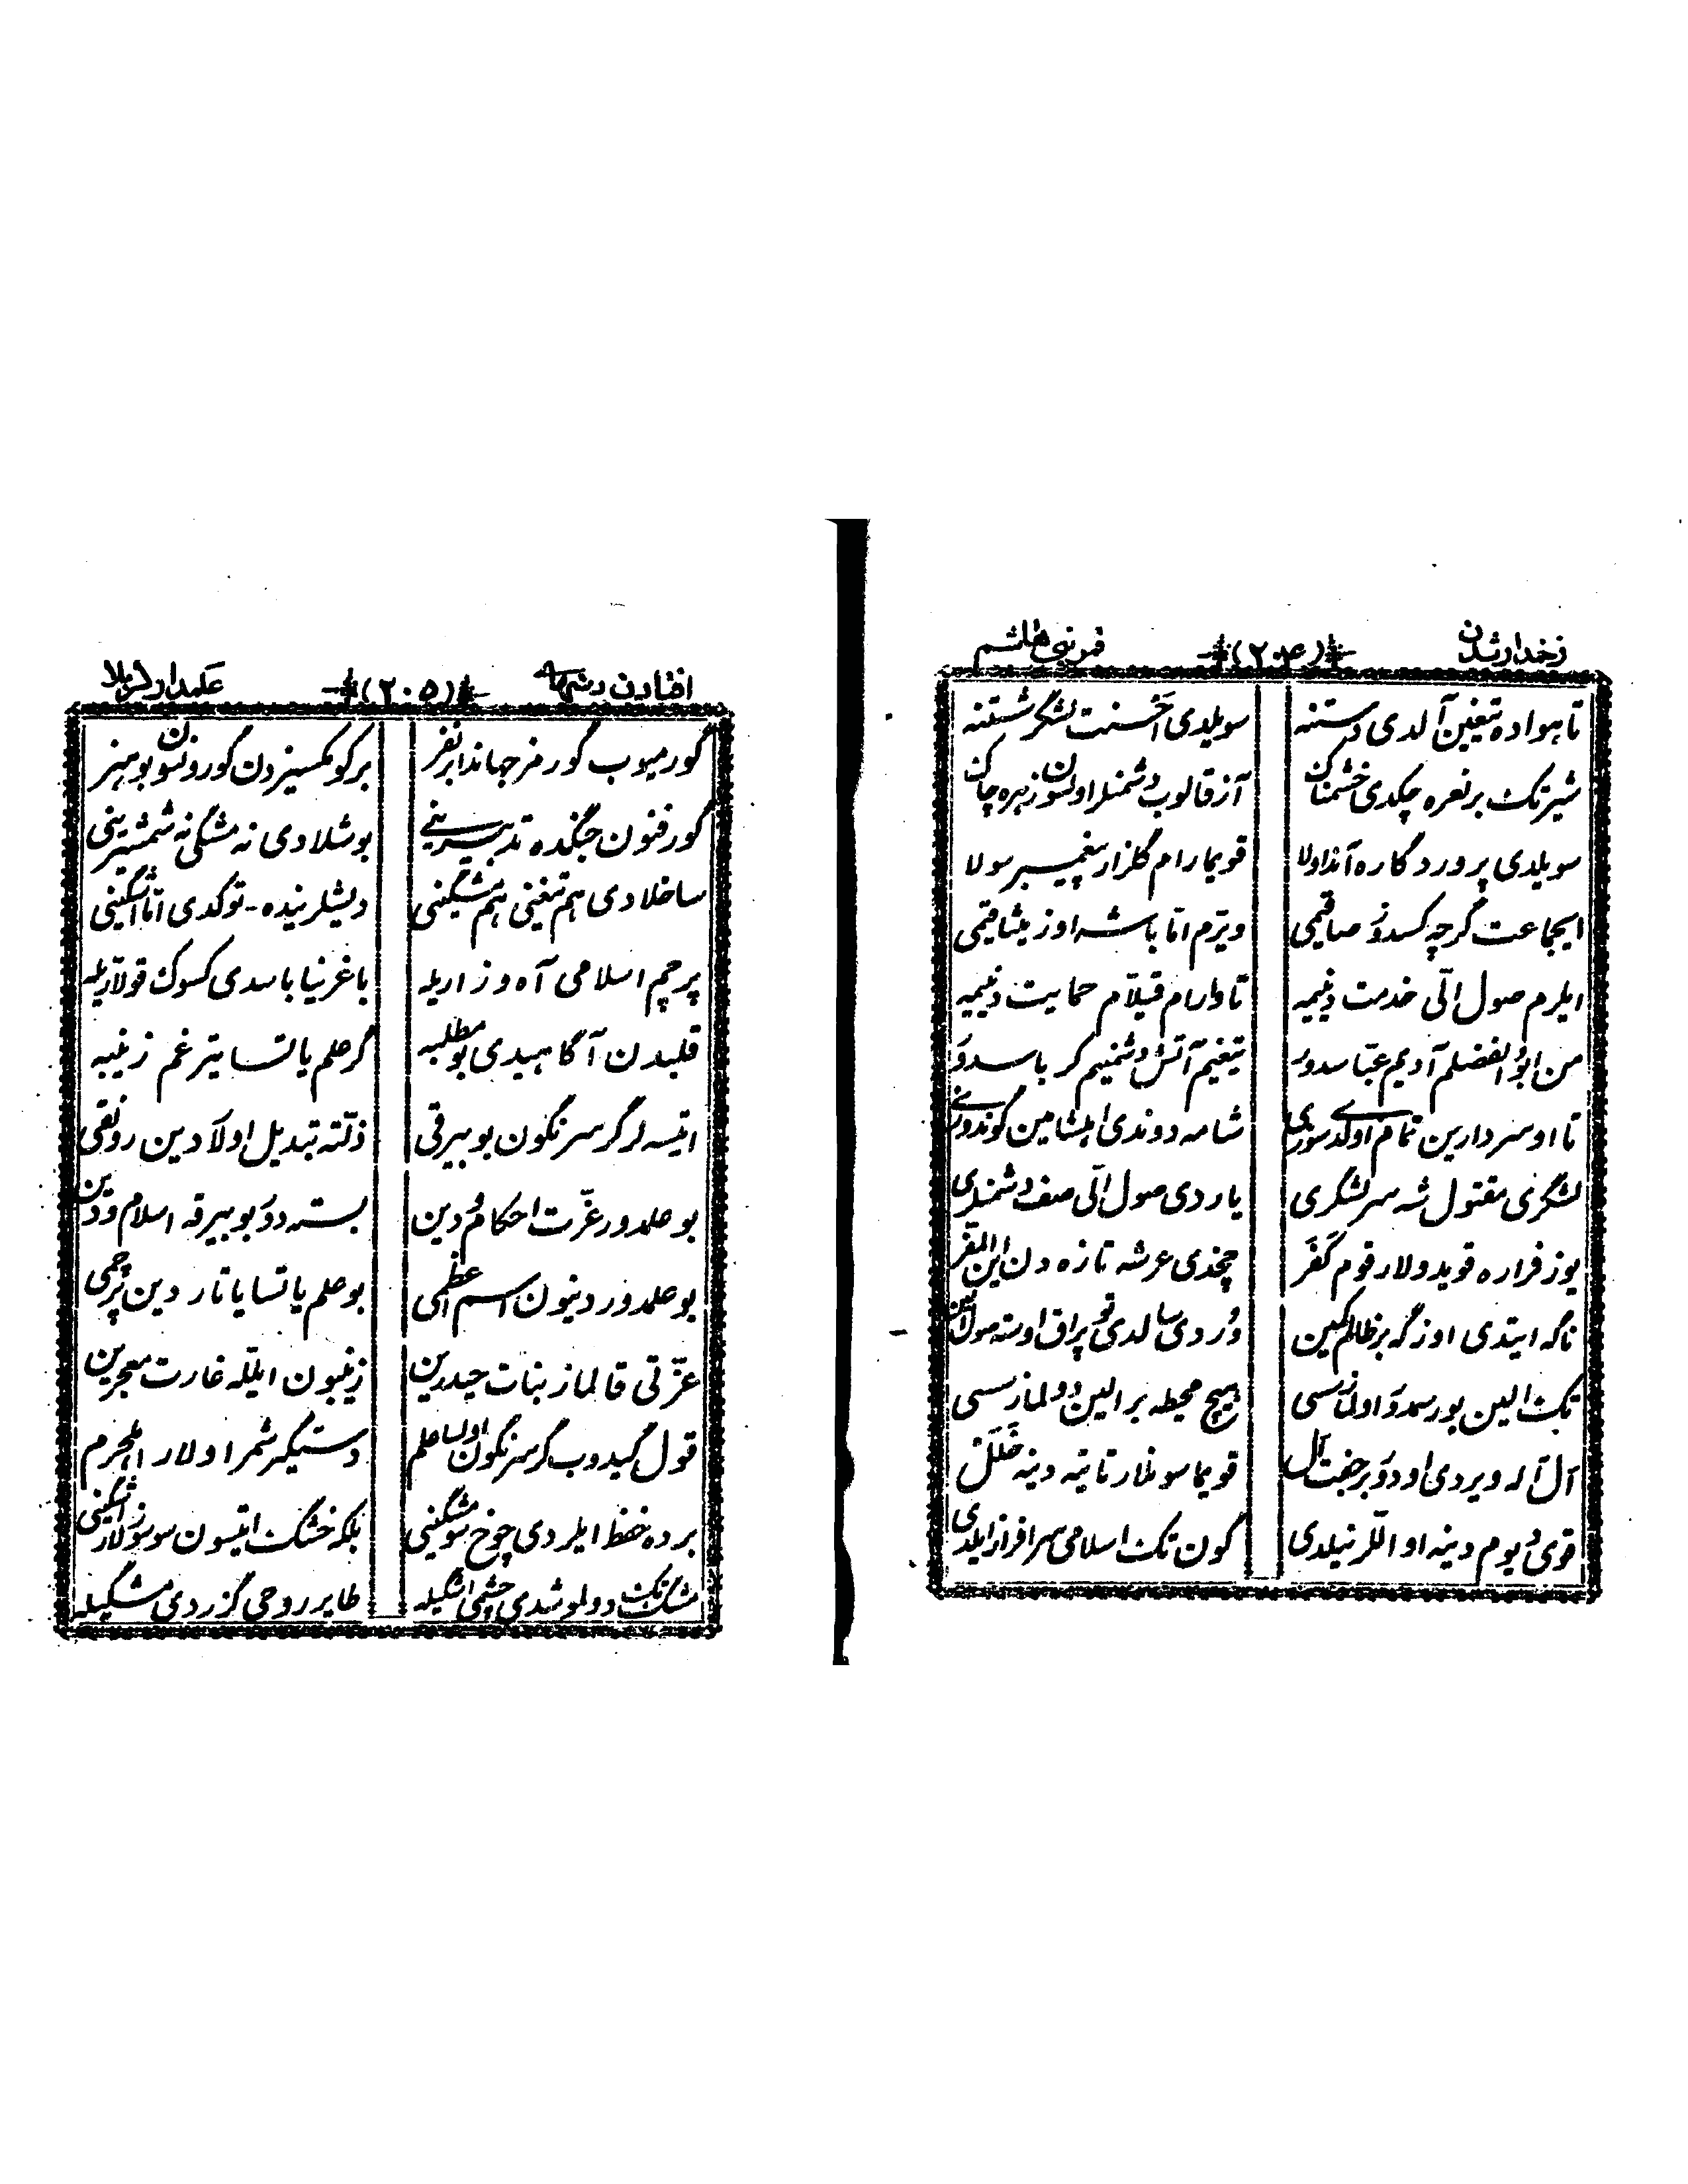 زخمدار شدن (۲۰۴) قمر بنی هاشم
تا هواده تیغین آلدی دستنه سویلدی احسنت لشگر شستنه
شیر تک بر نعره چکدی خشمناک آز قالوب دشمنلر اولسون زهره چاک
سویلدی پروردگاره آند اولا قویمارام گلزار پیغمبر سولا
ایجماعت گرچه کسدوز صاقیمی ویررم امّا باشه اوز میثاقیمی
ایلرم صول الّی خدمت دینیمه تا وارام قیللام حمایت دینیمه
من ابوالفضلم آدیم عبّاسدور تیغیم آتش دشمنیم کرباسدور
تا او سردارین تمام اوگد سوزی شامه دوندی اهل شامین گوندوزی
لشگری مقتول شه سر لشگری یاردی صول الّی صف دشمنلری
یوز فراره قویدولار قوم کفر چخدی عرشه تازه دن این المفر
ناگه ایتدی اوزگه بر ظالم کمین ووردی سالدی توپراق اوسته صول الین
تک الین بورسمدو اولماز سسی هیچ محیطه بر الین دولماز سسی
آل اله ویردی او دوَر بر جفت ال قویماسونلار تا یته دینه خلل
قوی دیوم دینه او اللر نیلدی گون تک اسلامی سرافراز ایلدی
افتادن دستهای (۲۰۵) علمدار کربلا
گورمیوب گورمز جهاندا بر نفر بر کومکسیزدن گورونسون بو هنر
گور فنون جنگده تدبیرینی بوشلادی نه مشگی نه شمشیرینی
ساخلادی هم تیغنی هم مشگینی دیشلرینده - توکدی امّا اشگینی
پرچم اسلامی آه و زاریله باغرنیا باسدی کسوک قولاریله
قلبدن آگاهیدی بو مطلبه گر علم یاتسا یتر غم زینبه
ایتسه لر گر سرنگون بو بیرقی ذلّته تبدیل اولا دین رونقی
بو علمدور عزّت احکام دین بسته دور بو بیرقه اسلام و دین
بو علمدور دینون اسم اعظمی بو علم یاتسا یاتار دین پرچمی
عزّتی قالماز بنات حیدرین زینبون ایللّه غارت معجرین
قول گیدوب گر سرنگون اولسا علم دستگیر شمر اولار اهل حرم
برده حفظ ایلردی چوخ سو مشگینی بلکه خشک ایتسون سوسوزلار اشگینی
مشگ تک دولموشدی چشمی اشگیله طایر روحی گزردی مشگیله